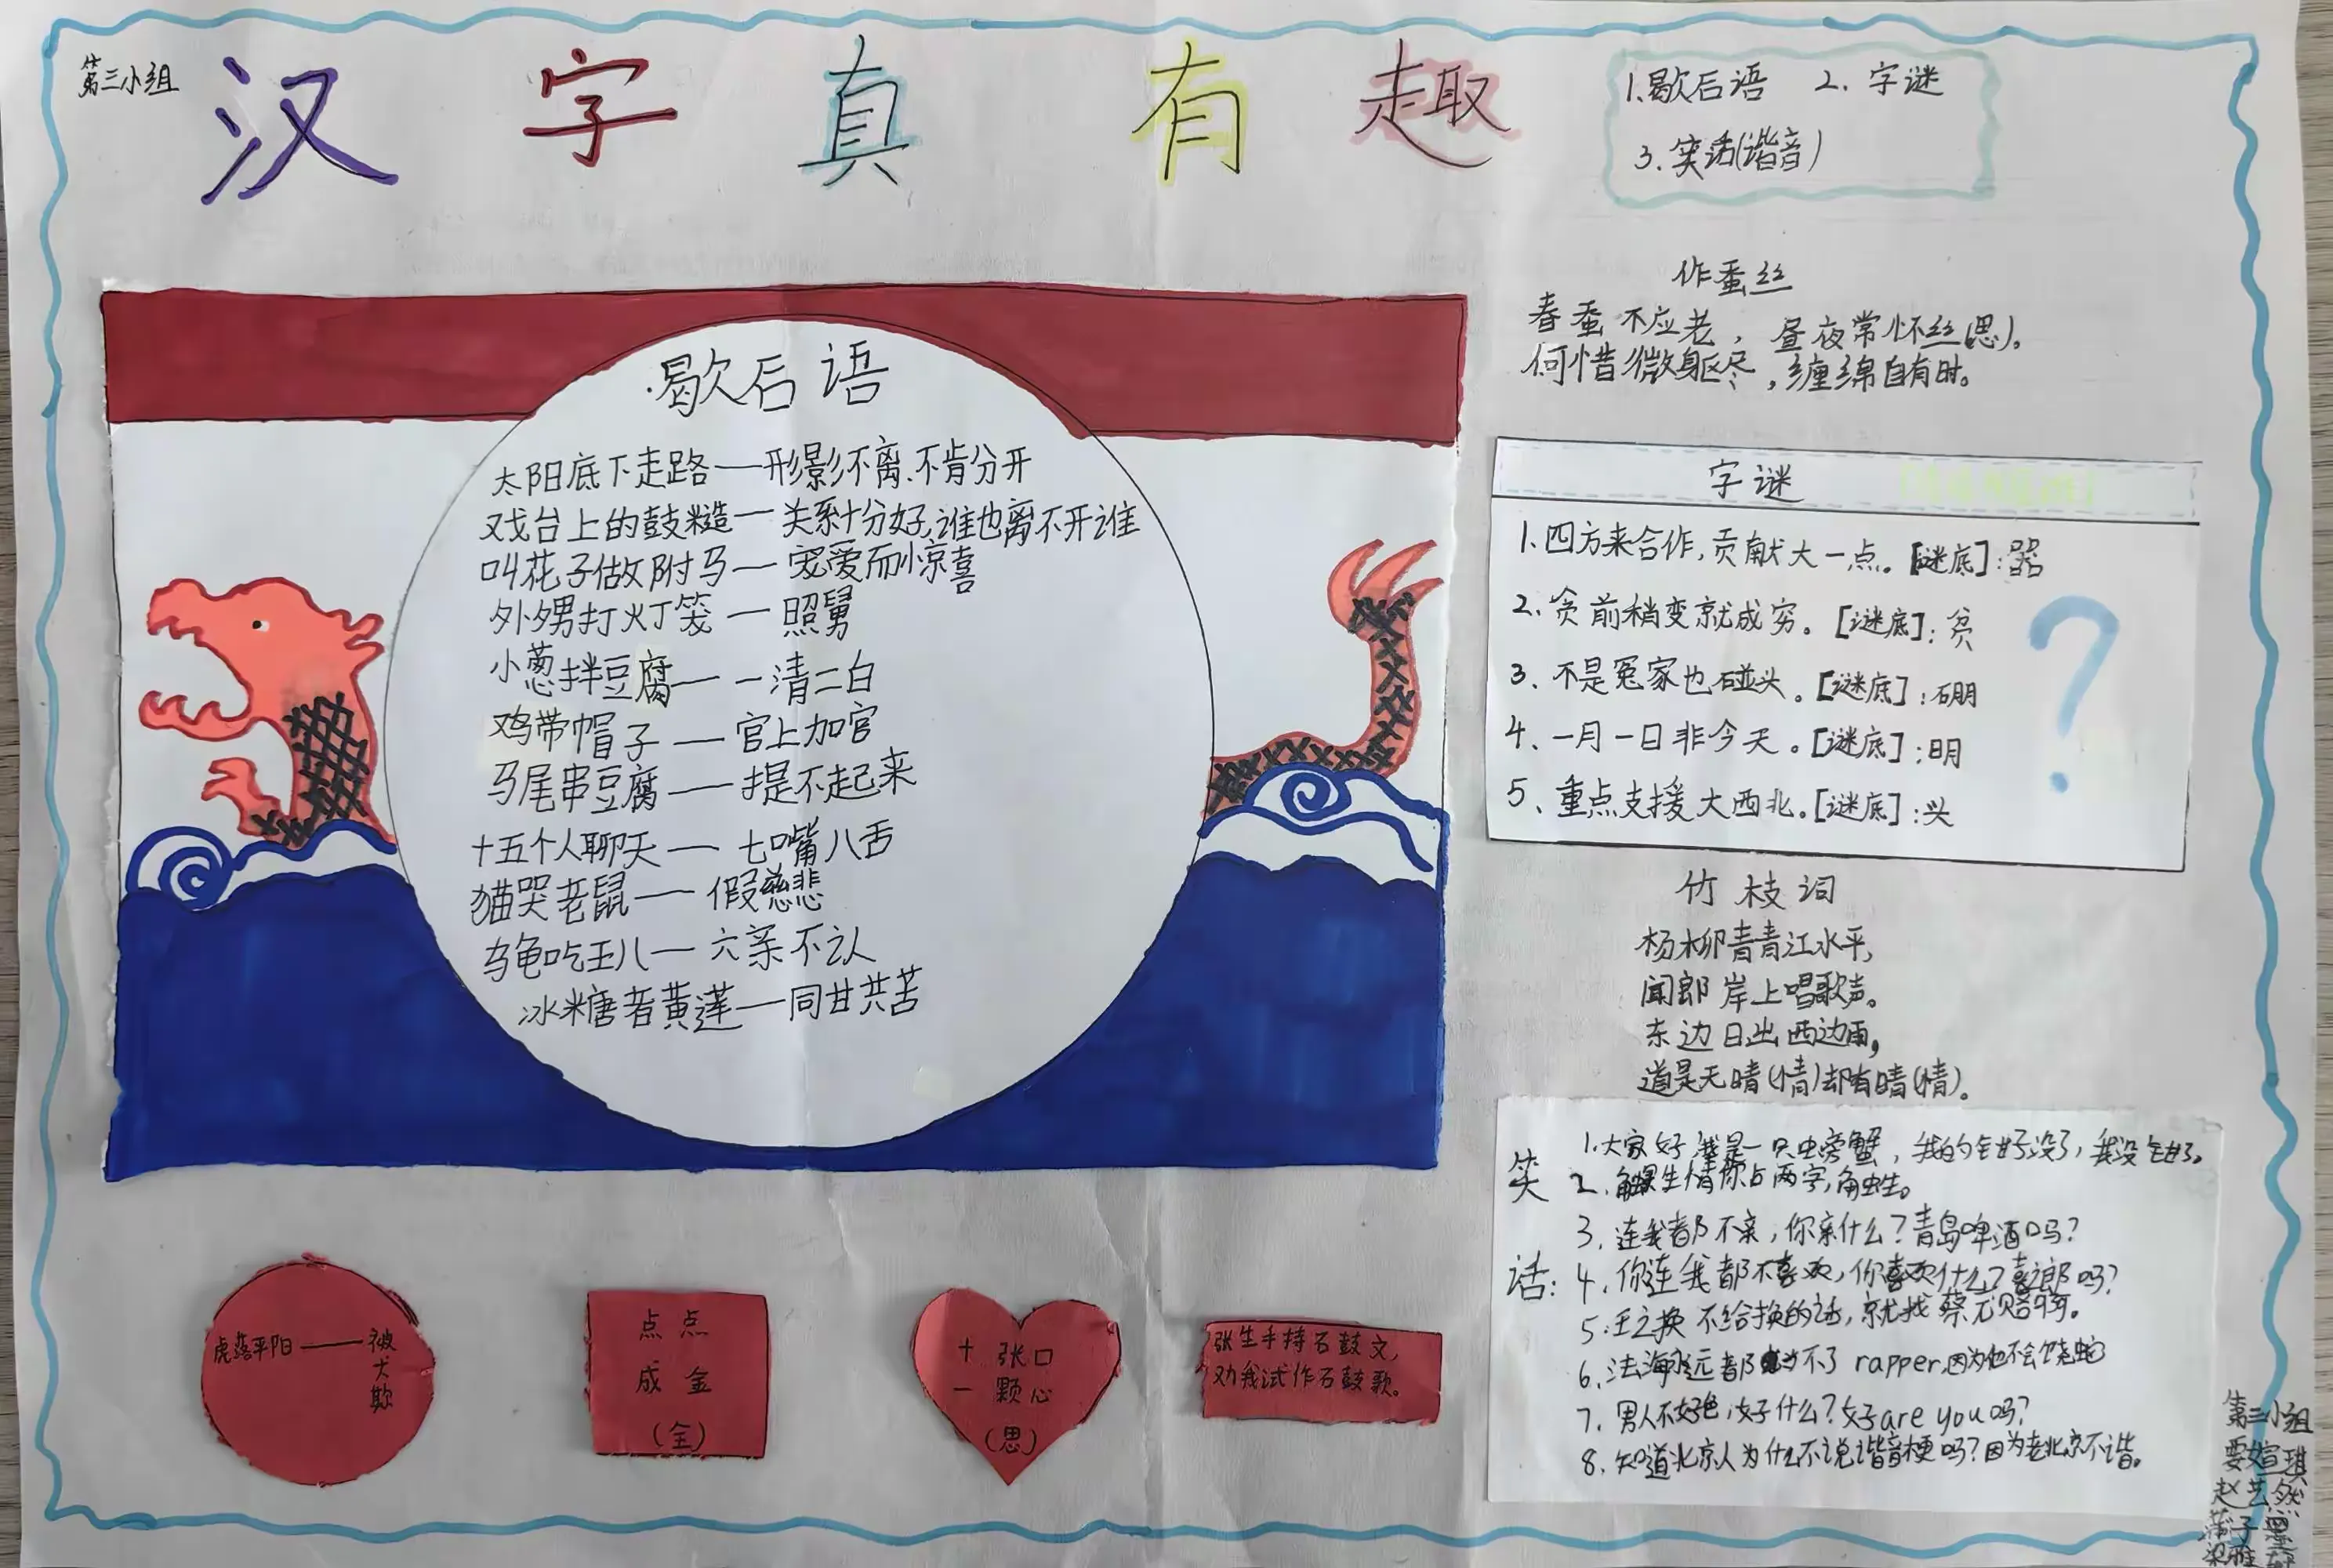 第三小组
汉字真有趣
1.歇后语 2.字谜
3.笑话(谐音)
作蚕丝
春蚕不应老，昼夜常怀丝(思)。
何惜微躯尽，缠绵自有时。
歇后语
太阳底下走路——形影不离、不肯分开
戏台上的鼓糙—关系十分好,谁也离不开谁
叫花子做附马—宠爱而惊喜
外甥打灯笼—照舅
小葱拌豆腐——一清二白
鸡带帽子——官上加官
马尾串豆腐——提不起来
十五个人聊天——七嘴八舌
猫哭老鼠——假慈悲
乌龟吃王八—六亲不认
冰糖者黄莲——同甘共苦
字谜
1.四方来合作,贡献大一点。[谜底]:器
2、贫前稍变就成穷。[谜底]:贫
3、不是冤家也碰头。[谜底]:硼
4、一月一日非今天。[谜底]:明
5、重点支援大西北。[谜底]:头
竹枝词
杨柳青青江水平,
闻郎岸上唱歌声。
东边日出西边雨,
道是无晴(情)却有晴(情)。
笑话:
1.大家好我是一只螃蟹，我的钳子没了，我没钳了。
3.连我都不亲，你亲什么？青岛啤酒吗？
4.你连我都不喜欢,你喜欢什么?喜之郎吗?
5.王之换不给换的话,就找蔡尤赔哥。
6.法海永远都当不了rapper,因为他不会饶蛇
7.男人不好色,好什么?好are you吗?
8.知道北京人为什么不说谐音梗吗?因为老北京不谐。
虎落平阳——被犬欺
点点
成金
(全)
十张口
一颗心
(思)
张生手持石鼓文,
劝我试作石鼓歌。
第三小组